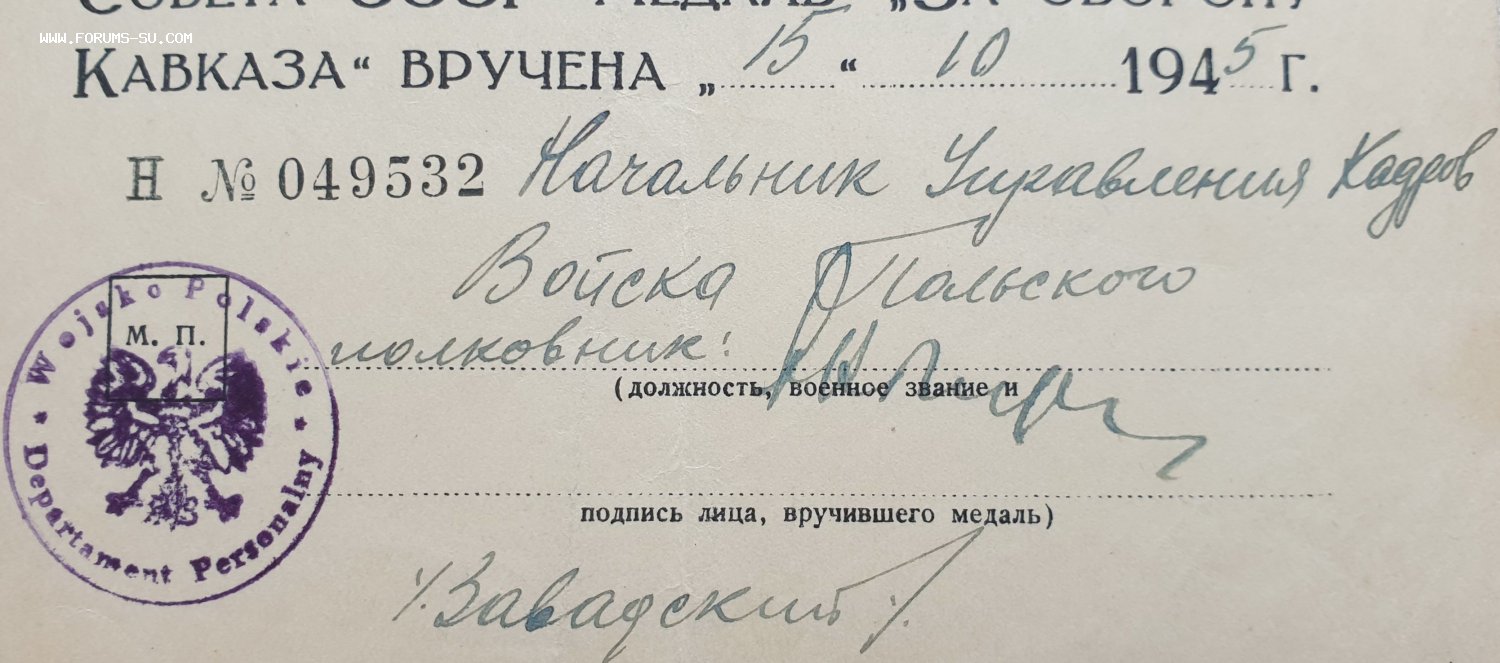 Совета СССР медаль „За оборону
WWW.FORUMS-SU.COM
Кавказа“ вручена „15“ 10 1945 г.
Н № 049532 Начальник Управления Кадров
Войска Польского
М. П.
полковник:
(должность, военное звание и
подпись лица, вручившего медаль)
/Завадский/
Wojsko Polskie
* Departament Personalny *